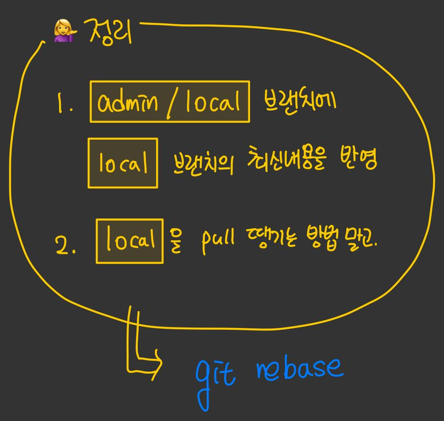 💁‍♀️ 정리
1. admin / local 브랜치에
local 브랜치의 최신내용을 반영
2. local 을 pull 땡기는 방법 말고.
git rebase